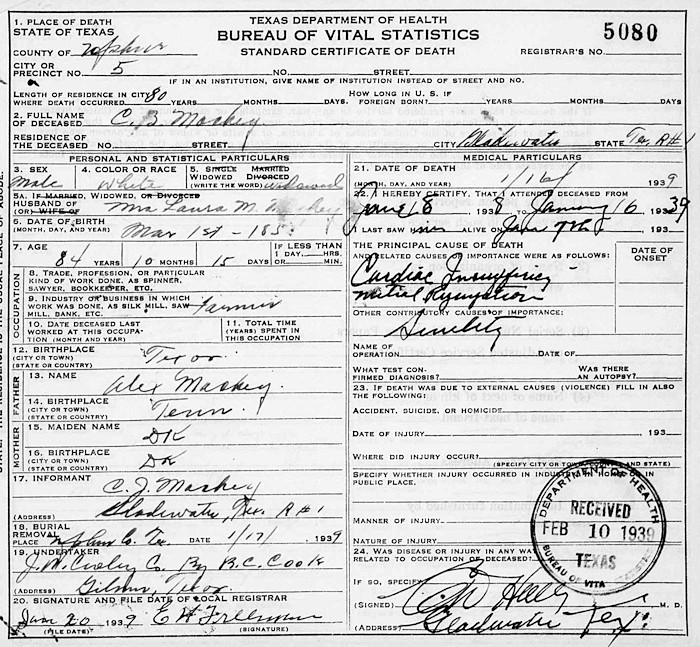 TEXAS DEPARTMENT OF HEALTH
BUREAU OF VITAL STATISTICS
STANDARD CERTIFICATE OF DEATH
1. PLACE OF DEATH
STATE OF TEXAS
COUNTY OF Upshur
REGISTRAR'S NO. 5080
CITY OR
PRECINCT NO. 5 NO. STREET
IF IN AN INSTITUTION, GIVE NAME OF INSTITUTION INSTEAD OF STREET AND NO.
LENGTH OF RESIDENCE IN CITY
WHERE DEATH OCCURRED 80 YEARS MONTHS DAYS
HOW LONG IN U. S. IF
FOREIGN BORN? YEARS MONTHS DAYS
2. FULL NAME
OF DECEASED C. B. Mackey
RESIDENCE OF
THE DECEASED NO. STREET CITY Gladewater STATE Tex, R#1
PERSONAL AND STATISTICAL PARTICULARS
3. SEX
Male
4. COLOR OR RACE
White
5. SINGLE MARRIED
WIDOWED DIVORCED
(WRITE THE WORD) widowed
5A. IF MARRIED, WIDOWED, OR DIVORCED
HUSBAND OF
(OR) WIFE OF Mrs Laura M.
6. DATE OF BIRTH
(MONTH, DAY, AND YEAR) Mar 1st - 185
7. AGE
84 YEARS 10 MONTHS 15 DAYS
IF LESS THAN
1 DAY, HRS.
OR MIN.
OCCUPATION
8. TRADE, PROFESSION, OR PARTICULAR
KIND OF WORK DONE, AS SPINNER,
SAWYER, BOOKKEEPER, ETC.
9. INDUSTRY OR BUSINESS IN WHICH
WORK WAS DONE, AS SILK MILL, SAW
MILL, BANK, ETC. Farmer
10. DATE DECEASED LAST
WORKED AT THIS OCCUPA-
TION (MONTH AND YEAR)
11. TOTAL TIME
(YEARS) SPENT IN
THIS OCCUPATION
12. BIRTHPLACE
(CITY OR TOWN)
(STATE OR COUNTRY) Texas
FATHER
13. NAME
Alex Mackey
14. BIRTHPLACE
(CITY OR TOWN)
(STATE OR COUNTRY) Tenn.
MOTHER
15. MAIDEN NAME
DK
16. BIRTHPLACE
(CITY OR TOWN)
(STATE OR COUNTRY) DK
17. INFORMANT
C. J. Mackey
(ADDRESS) Gladewater, Tex. R#1
18. BURIAL
REMOVAL
PLACE Upshur Co. Tex DATE 1/17/ 1939
19. UNDERTAKER
By B. C. Cook
(ADDRESS) Gilmer, Texas
20. SIGNATURE AND FILE DATE OF LOCAL REGISTRAR
Jan 20 1939
(FILE DATE) (SIGNATURE)
MEDICAL PARTICULARS
21. DATE OF DEATH
(MONTH, DAY, AND YEAR) 1/16/ 1939
22. I HEREBY CERTIFY, THAT I ATTENDED DECEASED FROM
June 18 1938 January 16 1939
I LAST SAW him ALIVE ON 193
THE PRINCIPAL CAUSE OF DEATH
AND RELATED CAUSES OF IMPORTANCE WERE AS FOLLOWS:
DATE OF
ONSET
Cardiac
Mitral
OTHER CONTRIBUTORY CAUSES OF IMPORTANCE:
Senility
NAME OF
OPERATION DATE OF
WHAT TEST CON-
FIRMED DIAGNOSIS?
WAS THERE
AN AUTOPSY?
23. IF DEATH WAS DUE TO EXTERNAL CAUSES (VIOLENCE) FILL IN ALSO
THE FOLLOWING:
ACCIDENT, SUICIDE, OR HOMICIDE
DATE OF INJURY 193
WHERE DID INJURY OCCUR?
(SPECIFY CITY OR TOWN, COUNTY AND STATE)
SPECIFY WHETHER INJURY OCCURRED IN INDUSTRY, IN HOME, OR IN
PUBLIC PLACE.
MANNER OF INJURY
NATURE OF INJURY
24. WAS DISEASE OR INJURY IN ANY WAY
RELATED TO OCCUPATION OF DECEASED?
IF SO, SPECIFY
(SIGNED) M. D.
(ADDRESS) Gladewater Tex.
DEPARTMENT OF HEALTH
RECEIVED
FEB 10 1939
TEXAS
BUREAU OF VITAL STATISTICS